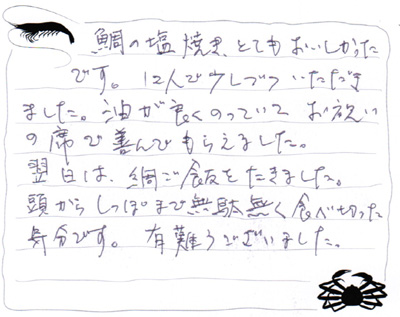 鯛の塩焼き、とてもおいしかった
です。12人で少しづついただき
ました。油が良くのっていて お祝い
の席で喜んでもらえました。
翌日は、鯛ご飯をたきました。
頭からしっぽまで無駄無く食べ切った
気分です。有難うございました。